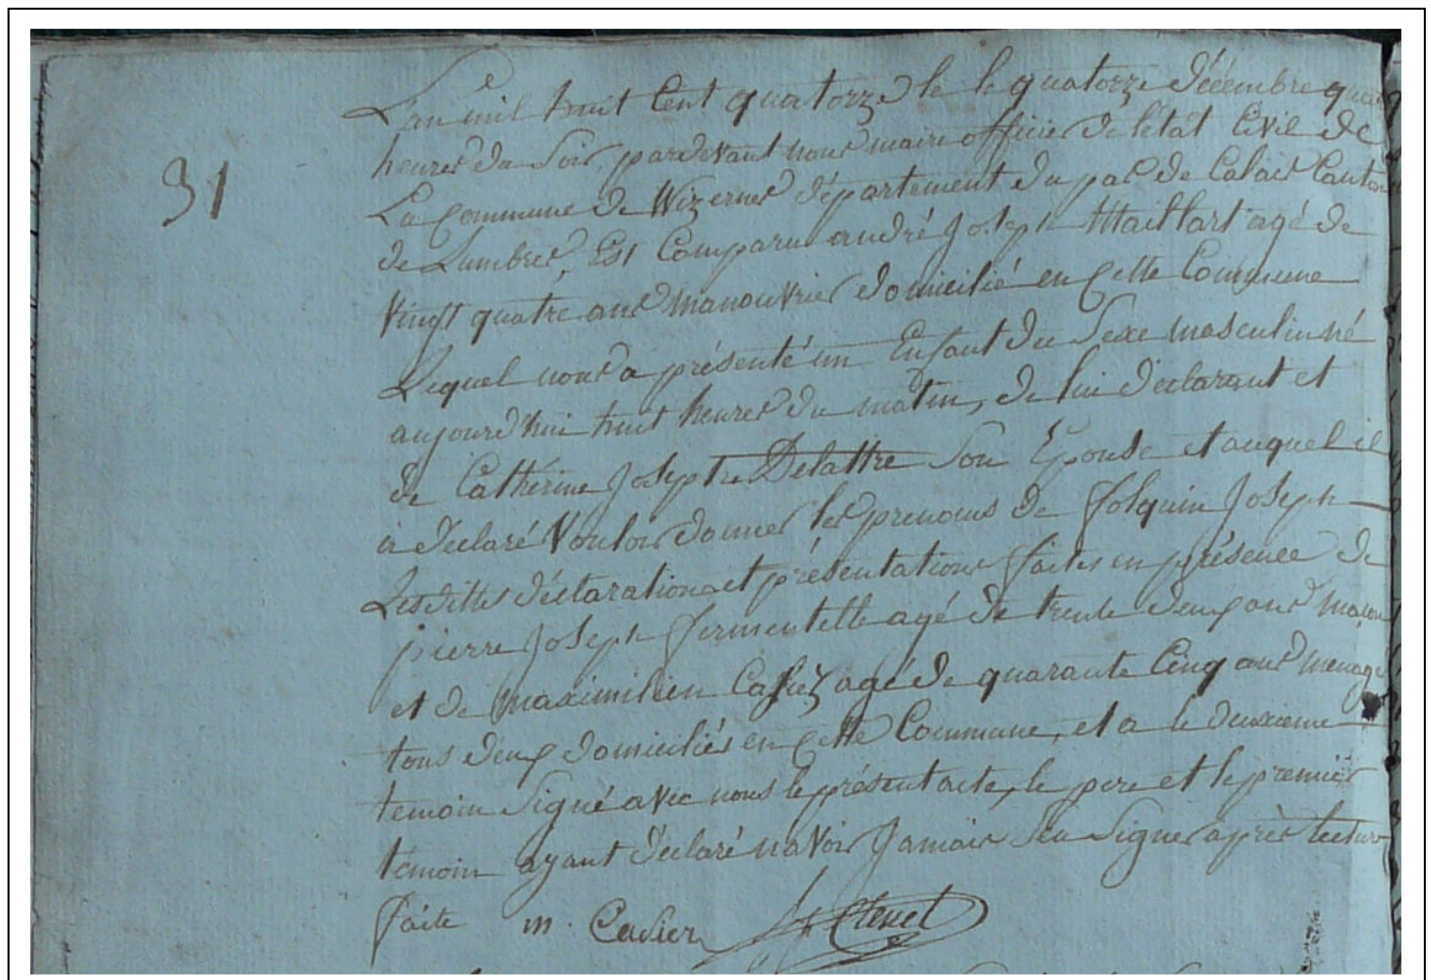 31
L'an mil huit Cent quatorze le le quatorze décembre
heures du Soir, pardevant nous maire officier de l'état Civil de
La Commune de Wizernes département du pas de Calais Canton
de Lumbres, Est Comparu andré Joseph Maillart agé de
vingt quatre ans manouvrier domicilié en Cette Commune
Lequel nous a présenté un Enfant du Sexe masculin né
aujourd'hui huit heures du matin, de lui déclarant et
de Catherine Josephe Delattre Son Epouse et auquel il
a déclaré Vouloir donner les prenoms de folquin Joseph
Lesdittes déclaration et présentation faites en présence de
pierre Joseph fermentelle agé de trente deux ans maçon
et de maximilien agé de quarante Cinq ans
tous deux domiciliés en Cette Commune, et a le deuxieme
temoin Signé avec nous le présent acte, le pere et le premier
témoin ayant déclaré n'avoir Jamais Seu Signer après lecture
faite m.